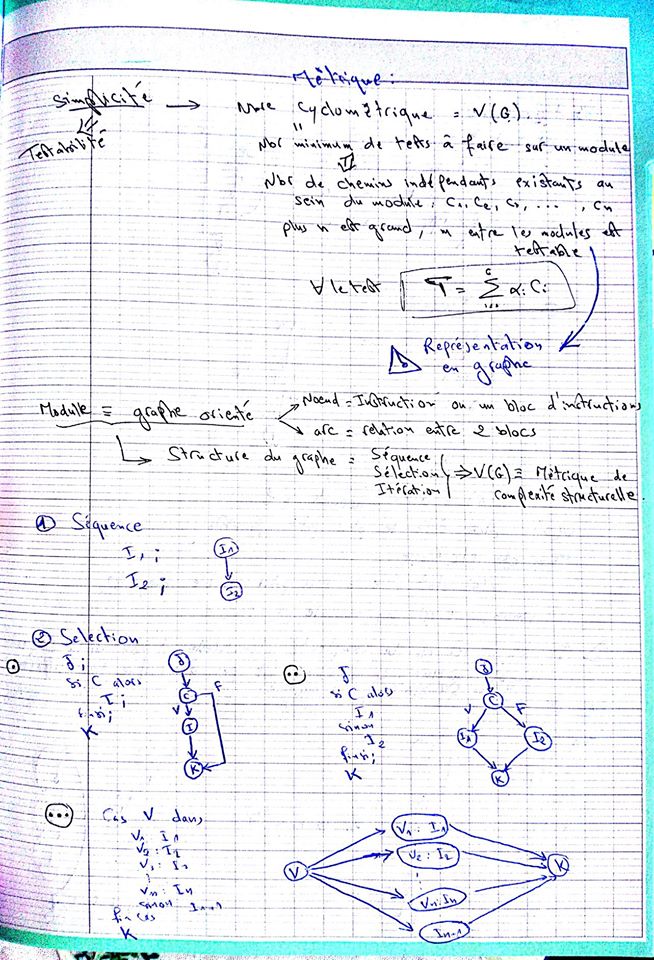 Métrique :
Simplicité → Nbre Cyclomètrique = V(G)
Testabilité
Nbr minimum de tests à faire sur un module
Nbr de chemins indépendants existants au
sein du module : C1, C2, C3, ...., Cn
plus n est grand, m entre les modules est
testable
∀ le test T = Σ αi Ci
Représentation
en graphe
Module ≡ graphe orienté
Noeud = Instruction ou un bloc d'instructions
arc = relation entre 2 blocs
Structure du graphe = Séquence
Sélection ⇒ V(G) ≡ Métrique de
Itération complexité structurelle
① Séquence
I1 ; I1
I2 ; I2
② Selection
J ; J
si C alors C F
I ; V I
finsi ;
K K
J J
si C alors C
I1 V F
sinon I1 I2
I2
finsi ;
K K
Cas V dans
V1 : I1 V1 : I1
V2 : I2 V2 : I2
V3 : I3 V K
Vn : In Vn : In
sinon In+1 In+1
fincas
K